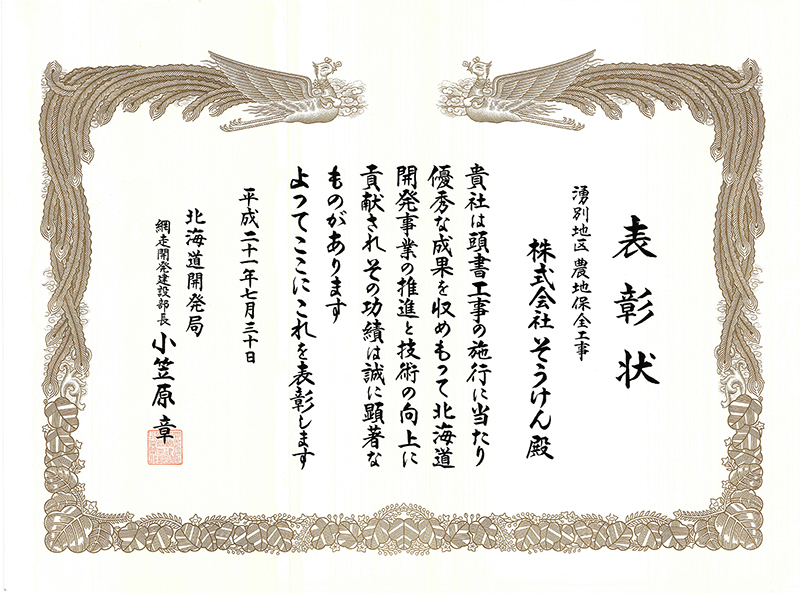 表彰状
湧別地区 農地保全工事
株式会社 そうけん 殿
貴社は頭書工事の施行に当たり
優秀な成果を収めもって北海道
開発事業の推進と技術の向上に
貢献され その功績は誠に顕著な
ものがあります
よってここにこれを表彰します
平成二十一年七月三十日
北海道開発局
網走開発建設部長 小笠原 章